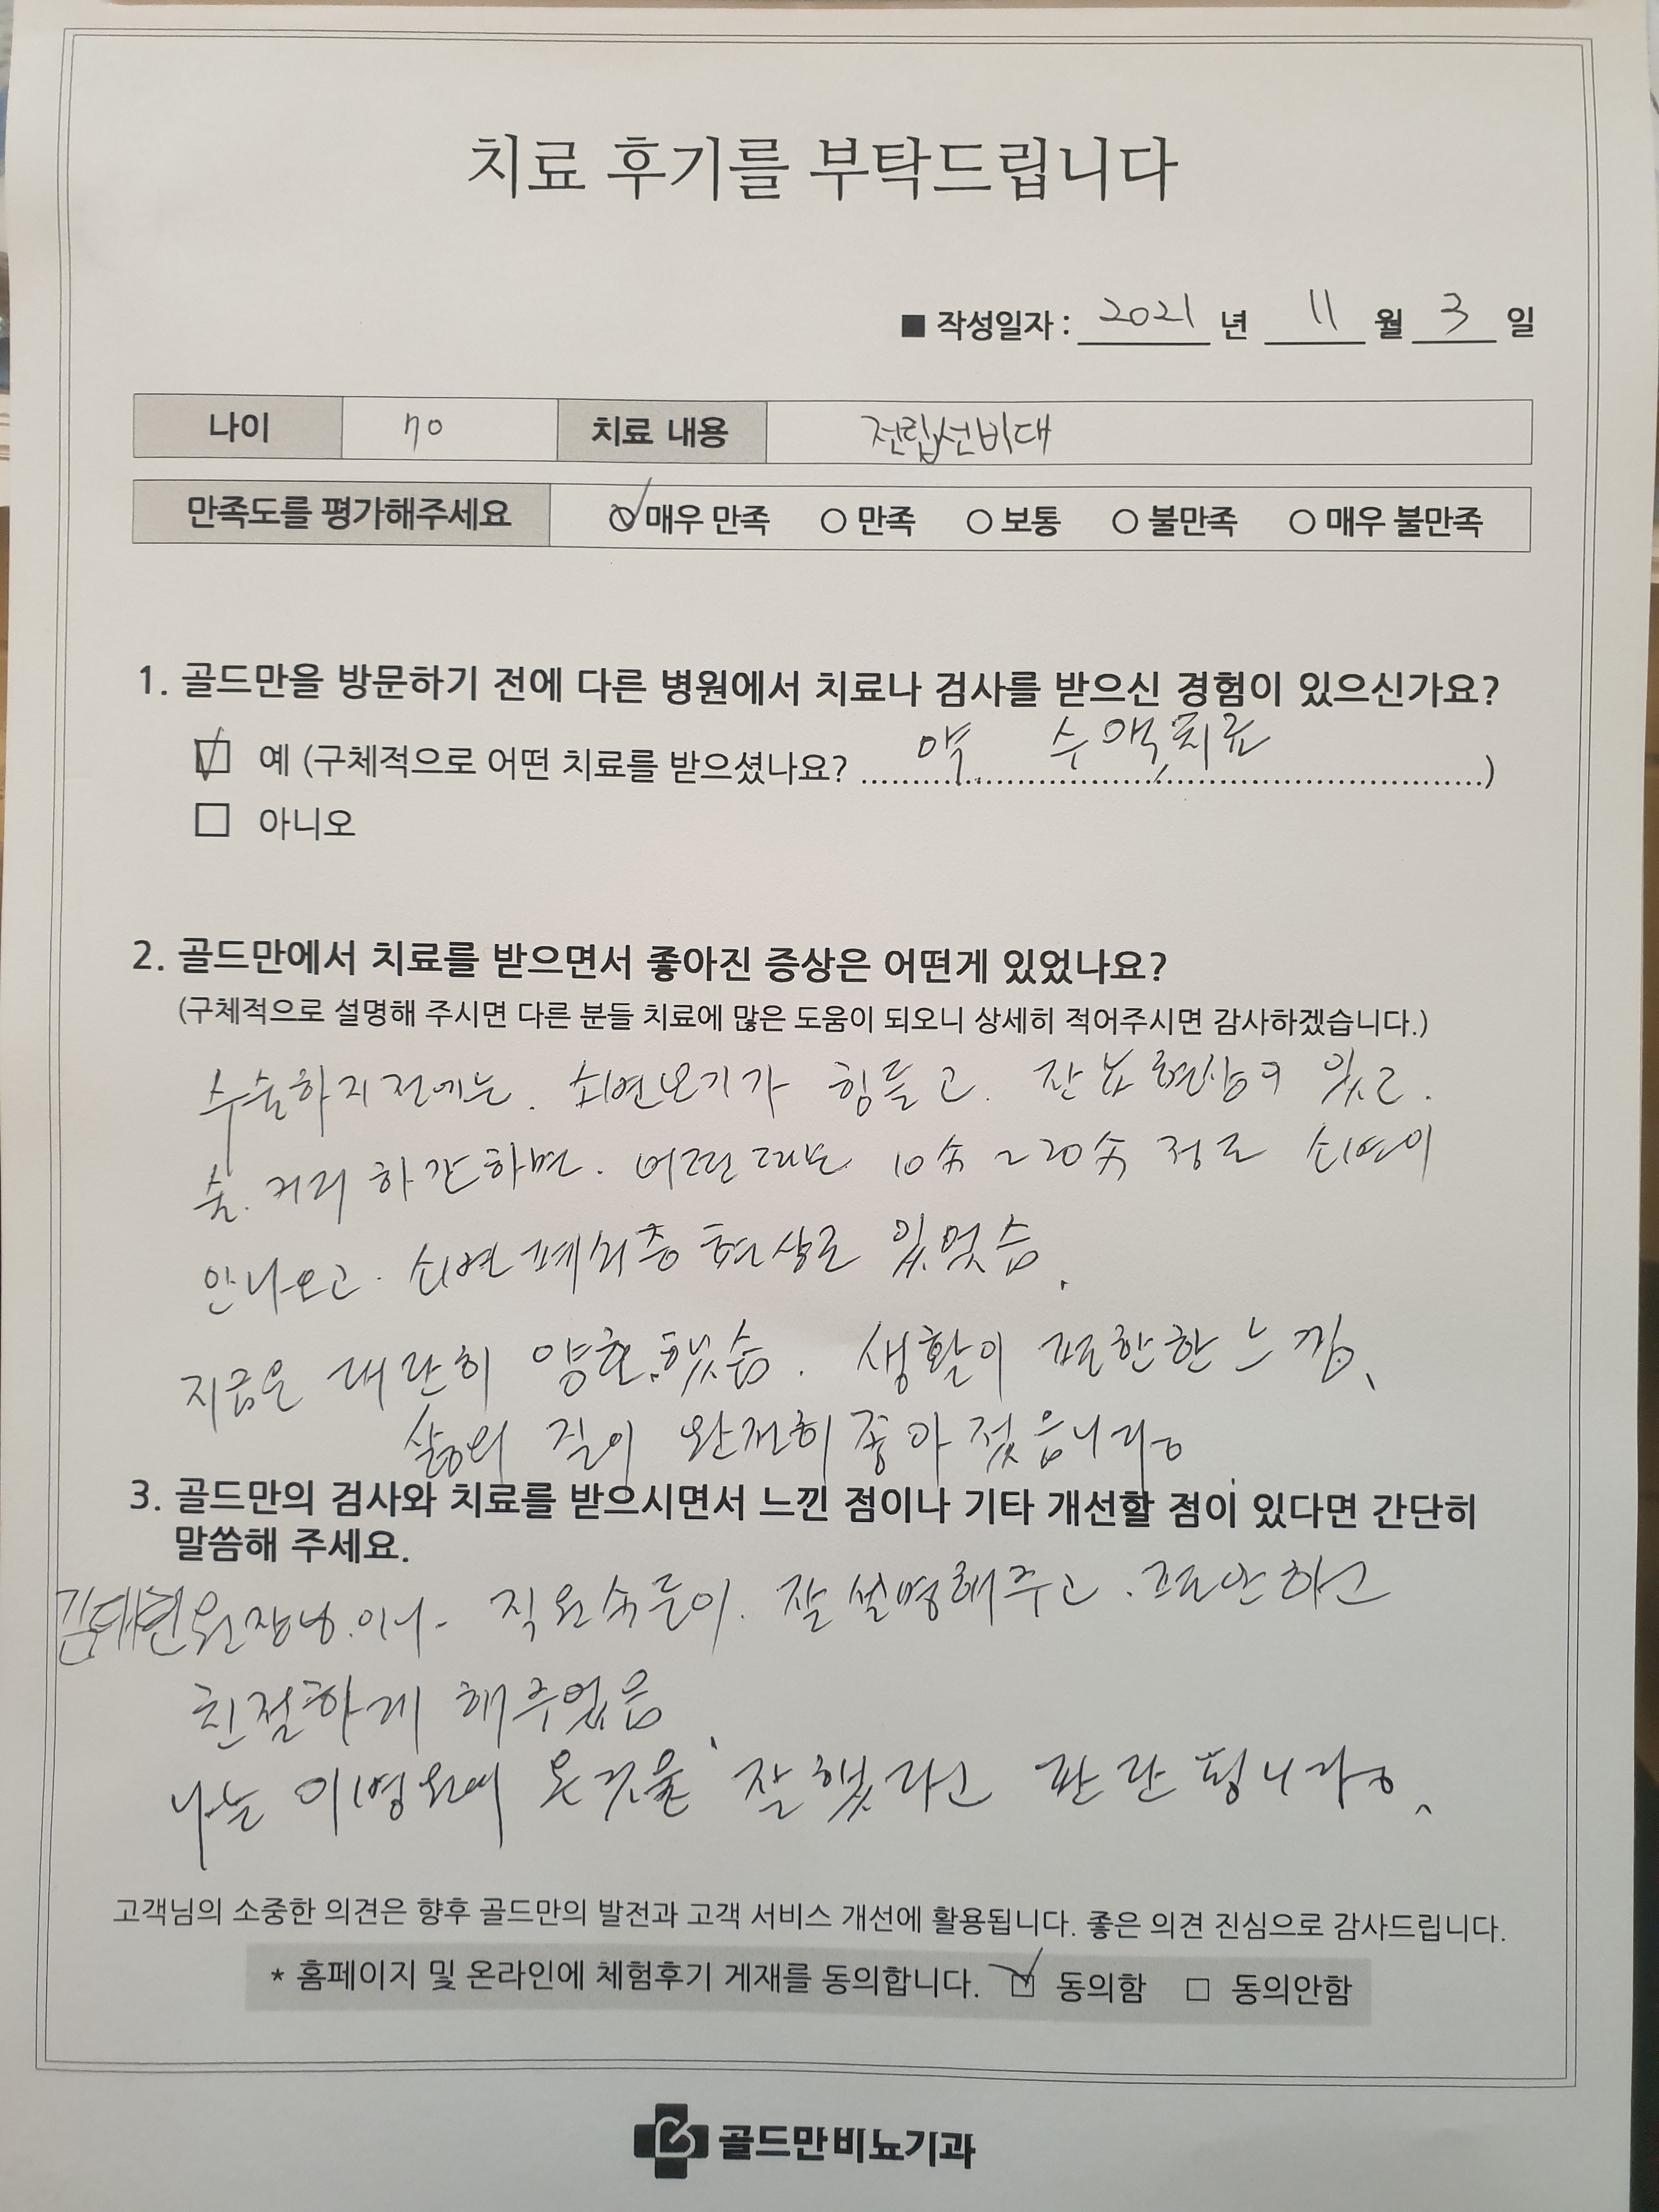 치료 후기를 부탁드립니다
■ 작성일자 : 2021 년 11 월 3 일
나이 70 치료 내용 전립선비대
만족도를 평가해주세요 ○ 매우 만족 ○ 만족 ○ 보통 ○ 불만족 ○ 매우 불만족
1. 골드만을 방문하기 전에 다른 병원에서 치료나 검사를 받으신 경험이 있으신가요?
☑ 예 (구체적으로 어떤 치료를 받으셨나요? 약. 수액치료)
□ 아니오
2. 골드만에서 치료를 받으면서 좋아진 증상은 어떤게 있었나요?
(구체적으로 설명해 주시면 다른 분들 치료에 많은 도움이 되오니 상세히 적어주시면 감사하겠습니다.)
수술하기전에는. 소변보기가 힘들고. 잔뇨현상이 있고.
술. 하면. 어떤때는 10分~20分 정도 소변이
안나오고. 소변폐쇄증 현상도 있었슴.
지금은 대단히 양호.했슴. 생활이 편한한 느낌.
삶의 질이 완전히 좋아 젔읍니다.
3. 골드만의 검사와 치료를 받으시면서 느낀 점이나 기타 개선할 점이 있다면 간단히
말씀해 주세요.
김태헌원장님.이나- 직원分들이. 잘 설명해주고. 편안하고
친절하게 해주었음.
나는 이병원에 온것을 잘했다고 판단됩니다.
고객님의 소중한 의견은 향후 골드만의 발전과 고객 서비스 개선에 활용됩니다. 좋은 의견 진심으로 감사드립니다.
* 홈페이지 및 온라인에 체험후기 게재를 동의합니다. ☑ 동의함 □ 동의안함
골드만비뇨기과